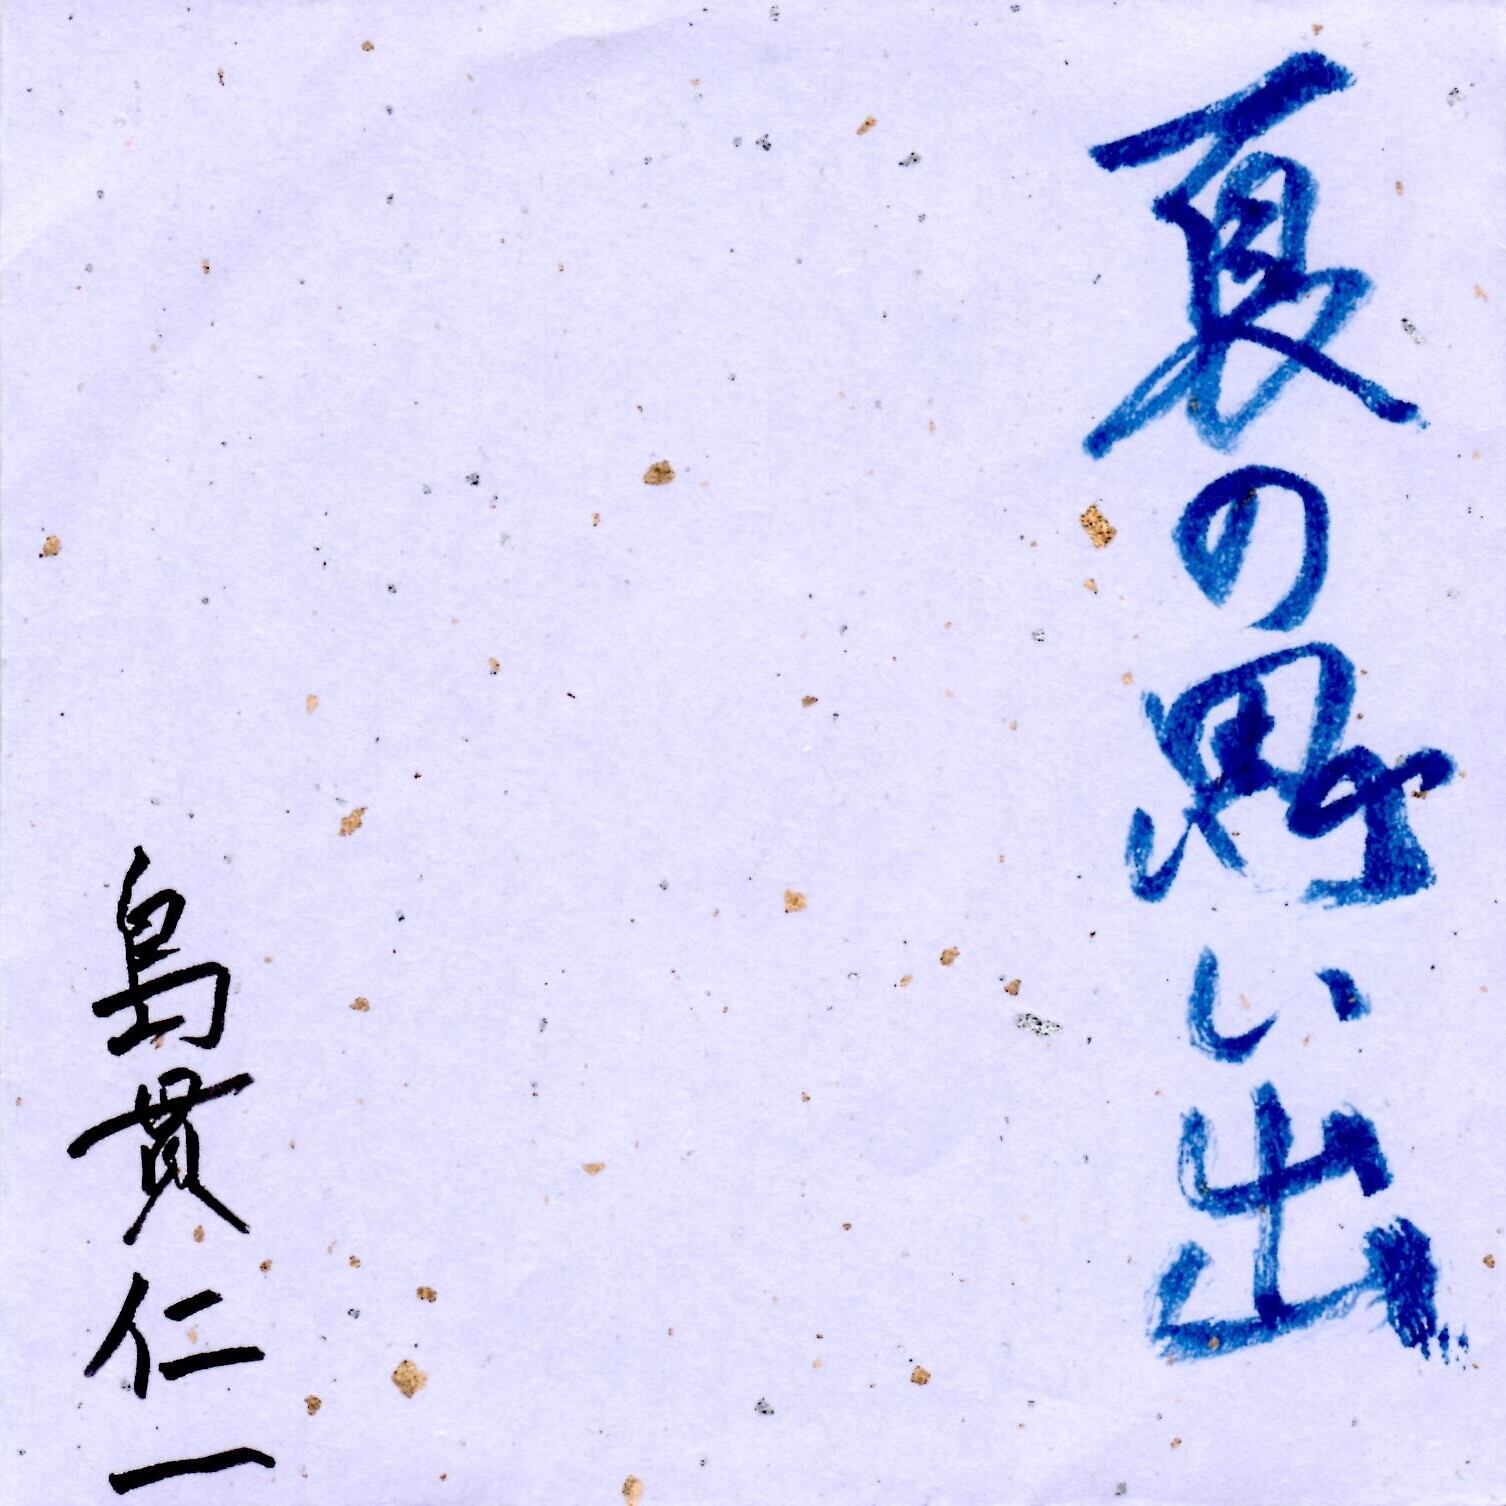 夏の思い出
島貫仁一